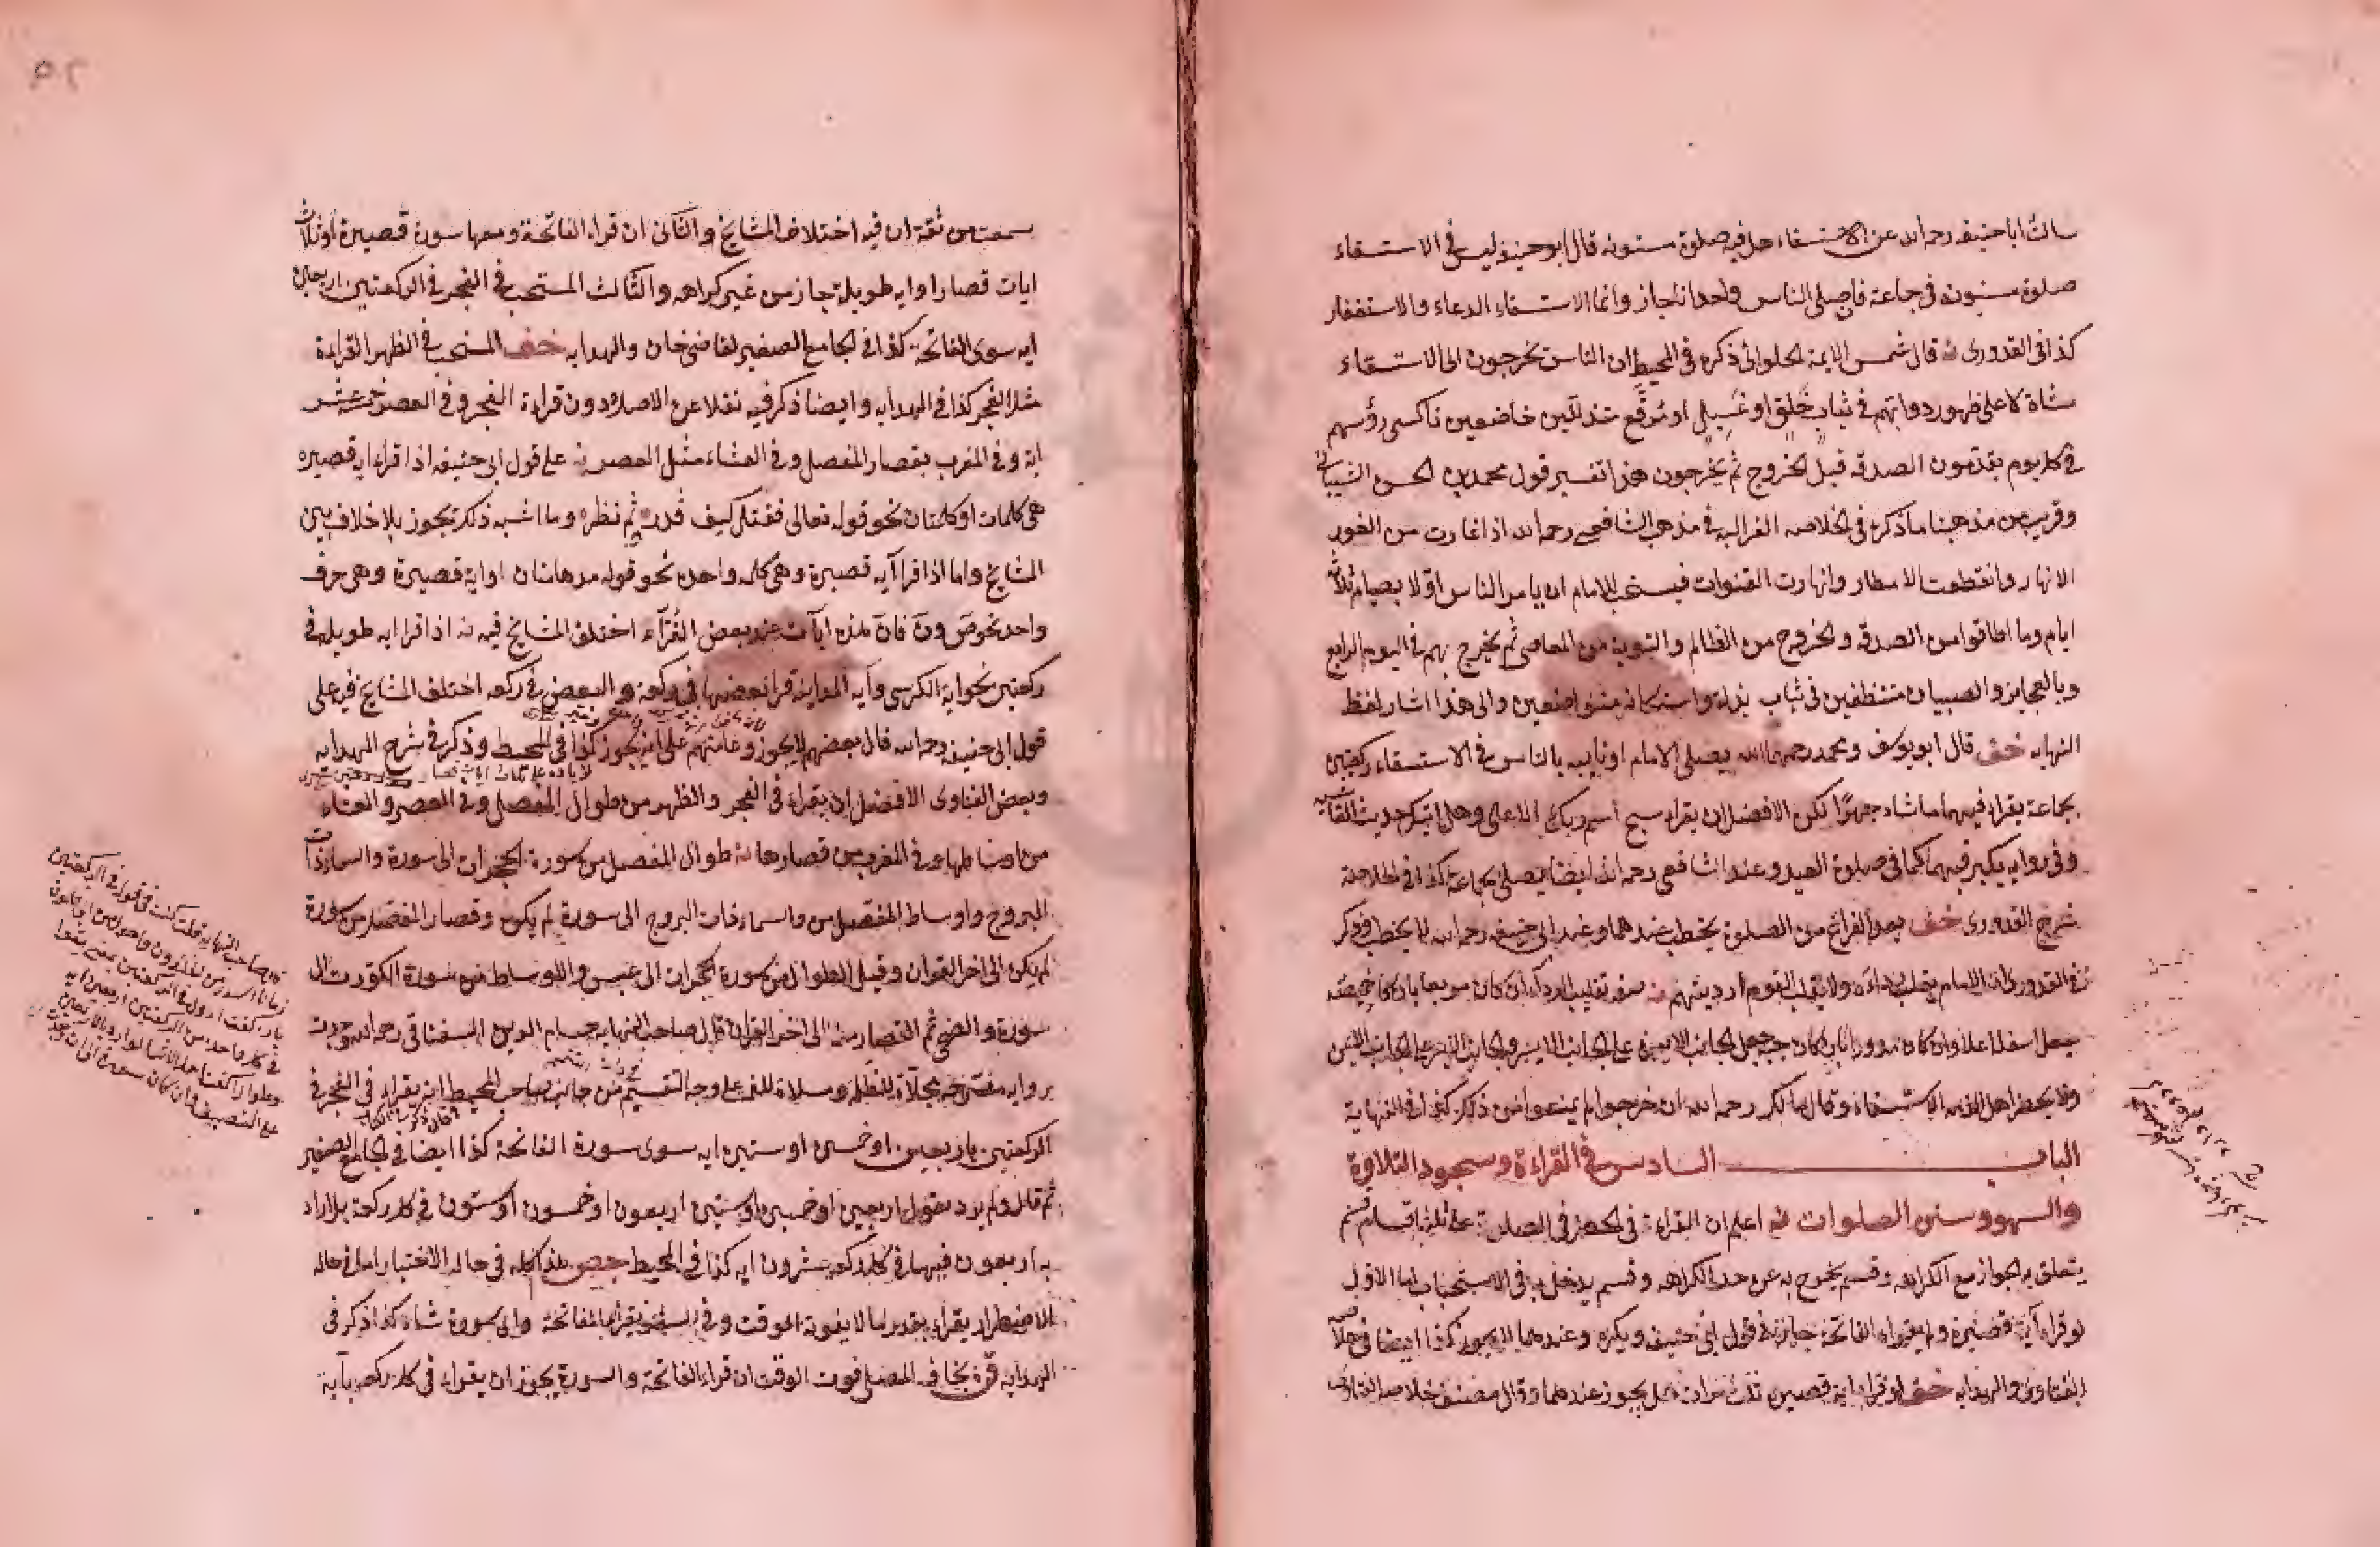 سالت ابا حنيفه رحمه الله عن الاستسقاء هل فيه صلوة مسنونه قال ابو حنيفه ليس في الاستسقاء
صلوة مسنونه في جماعة فان صلى الناس وحدانا جاز وانما الاستسقاء الدعاء والاستغفار
كذا في القدورى قال شمس الايمة الحلوائى ذكره في المحيط ان الناس يخرجون الى الاستسقاء
مشاة لا على ظهور دوابهم في ثياب خلق او غسيل او مرقع متذللين خاضعين ناكسى رؤسهم
في كل يوم يقدمون الصدقه قبل الخروج ثم يخرجون هذا تفسير قول محمد بن الحسن الشيبانى
وقريب من مذهبنا ما ذكره في الخلاصه الغزاليه في مذهب الشافعى رحمه الله اذا غارت من الغور
الانهار وانقطعت الامطار وانهارت القنوات فيستحب للامام ان يامر الناس اولا بصيام ثلاثة
ايام وما اطاقوا من الصدقه والخروج من المظالم والتوبة من المعاصى ثم يخرج بهم في اليوم الرابع
وبالعجايز والصبيان متنظفين في ثياب بذلة واستكانة متواضعين والى هذا اشار لفظ
النهايه خف قال ابو يوسف ومحمد رحمهما الله يصلى الامام او نايبه بالناس في الاستسقاء ركعتين
بجماعة يقراء فيهما ما شاء جهرا لكن الافضل ان يقراء سبح اسم ربك الاعلى وهل اتيك حديث الغاشيه
وفى روايه يكبر فيهما كما في صلوة العيد وعند الشافعى رحمه الله ايضا يصلى بجماعة كذا في
شرح القدورى خف بعد الفراغ من الصلوة يخطب عندهما وعند ابى حنيفه رحمه الله لا يخطب وذكر
في القدورى ان الامام يقلب رداءه ولا يقلب القوم ارديتهم صفة تقليب الرداء ان كان مربعا بان كان خميصة
جعل اسفله اعلاه وان كان مدورا بان كان جبه جعل الجانب الايمن على الجانب الايسر والجانب الايسر على الجانب الايمن
ولا يحضر اهل الذمه الاستسقاء وقال مالك رحمه الله ان خرجوا لم يمنعوا من ذلك كذا في النهاية
الباب السادس في القراءة وسجود التلاوة
والسهو وسنن الصلوات اعلم ان القراءة في الحضر في الصلوة على ثلثة اقسام قسم
يتعلق به الجواز مع الكراهه وقسم يخرج به عن حد الكراهه وقسم يدخل به في الاستحباب اما الاول
لو قراء آية قصيرة ولم يقراء الفاتحة جايز في قول ابى حنيفه ويكره وعندهما لا يجوز كذا ايضا في خلاصة
الفتاوى والهدايه خف لو قراء اية قصيرة ثلث مرات هل يجوز عندهما وقال مصنف خلاصة الفتاوى
سمعت من ثقة ان فيه اختلاف المشايخ والثانى ان قراء الفاتحة ومعها سورة قصيرة او ثلاث
ايات قصار او ايه طويلة جاز من غير كراهه والثالث المستحب في الفجر في الركعتين اربعين
ايه سوى الفاتحة كذا في الجامع الصغير لقاضى خان والهدايه خف المستحب في الظهر القراءة
مثل الفجر كذا في الهدايه وايضا ذكر فيه نقلا عن الاصل ودون قراءة الفجر وفى العصر خمسة عشر
اية وفى المغرب بقصار المفصل وفى العشاء مثل العصر على قول ابى حنيفه اذا قراء ايه قصيره
هى كلمات او كلمتان نحو قوله تعالى فقتل كيف قدر ثم نظر وما اشبه ذلك يجوز بلا خلاف بين
المشايخ واما اذا قرا آيه قصيرة وهى كلمه واحده نحو قوله مدهامتان او اية قصيرة وهى حرف
واحد نحو ص ون فان هذه ايآت عند بعض القراء اختلف المشايخ فيه اذا قرا ايه طويله في
ركعتين نحو اية الكرسى وآية المداينة قرا بعضها في ركعة والبعض في ركعه اختلف المشايخ فيه على
قول ابى حنيفه رحمه الله قال بعضهم لا يجوز وعامتهم على انه يجوز كذا في المحيط وذكر في شرح الهدايه
وبعض الفتاوى الافضل ان يقراء في الفجر والظهر من طوال المفصل وفى العصر والعشاء
من اوساطها وفى المغرب من قصارها طوال المفصل من سورة الحجرات الى سورة والسماء ذات
البروج واوساط المفصل من والسماء ذات البروج الى سورة لم يكن وقصار المفصل من سورة
لم يكن الى اخر القران وقيل الطوال من سورة الحجرات الى عبس والاوساط من سورة الكورت الى
سورة والضحى ثم القصار منه الى اخر القران قال صاحب النهايه حسام الدين السغناقى رحمه الله وجدت
بروايه على وجه التقسيم من جانب صاحب المحيط انه يقراء في الفجر في
الركعتين باربعين او خمسين او ستين ايه سوى سورة الفاتحة كذا ايضا في الجامع الصغير
ثم قال ولم يرد بقوله اربعين او خمسين او ستين اربعون او خمسون او ستون في كل ركعة بل اراد
به اربعون فيهما في كل ركعه عشرون ايه كذا في المحيط هذا كله في حاله الاختيار اما في حاله
الاضطرار يقراء بقدر ما لا يفوته الوقت وفى السفر يقراء بفاتحة واى سورة شاء كذا ذكر في
الهدايه يخاف المصلى فوت الوقت ان قراء الفاتحة والسورة يجوز ان يقراء في كل ركعه بآية